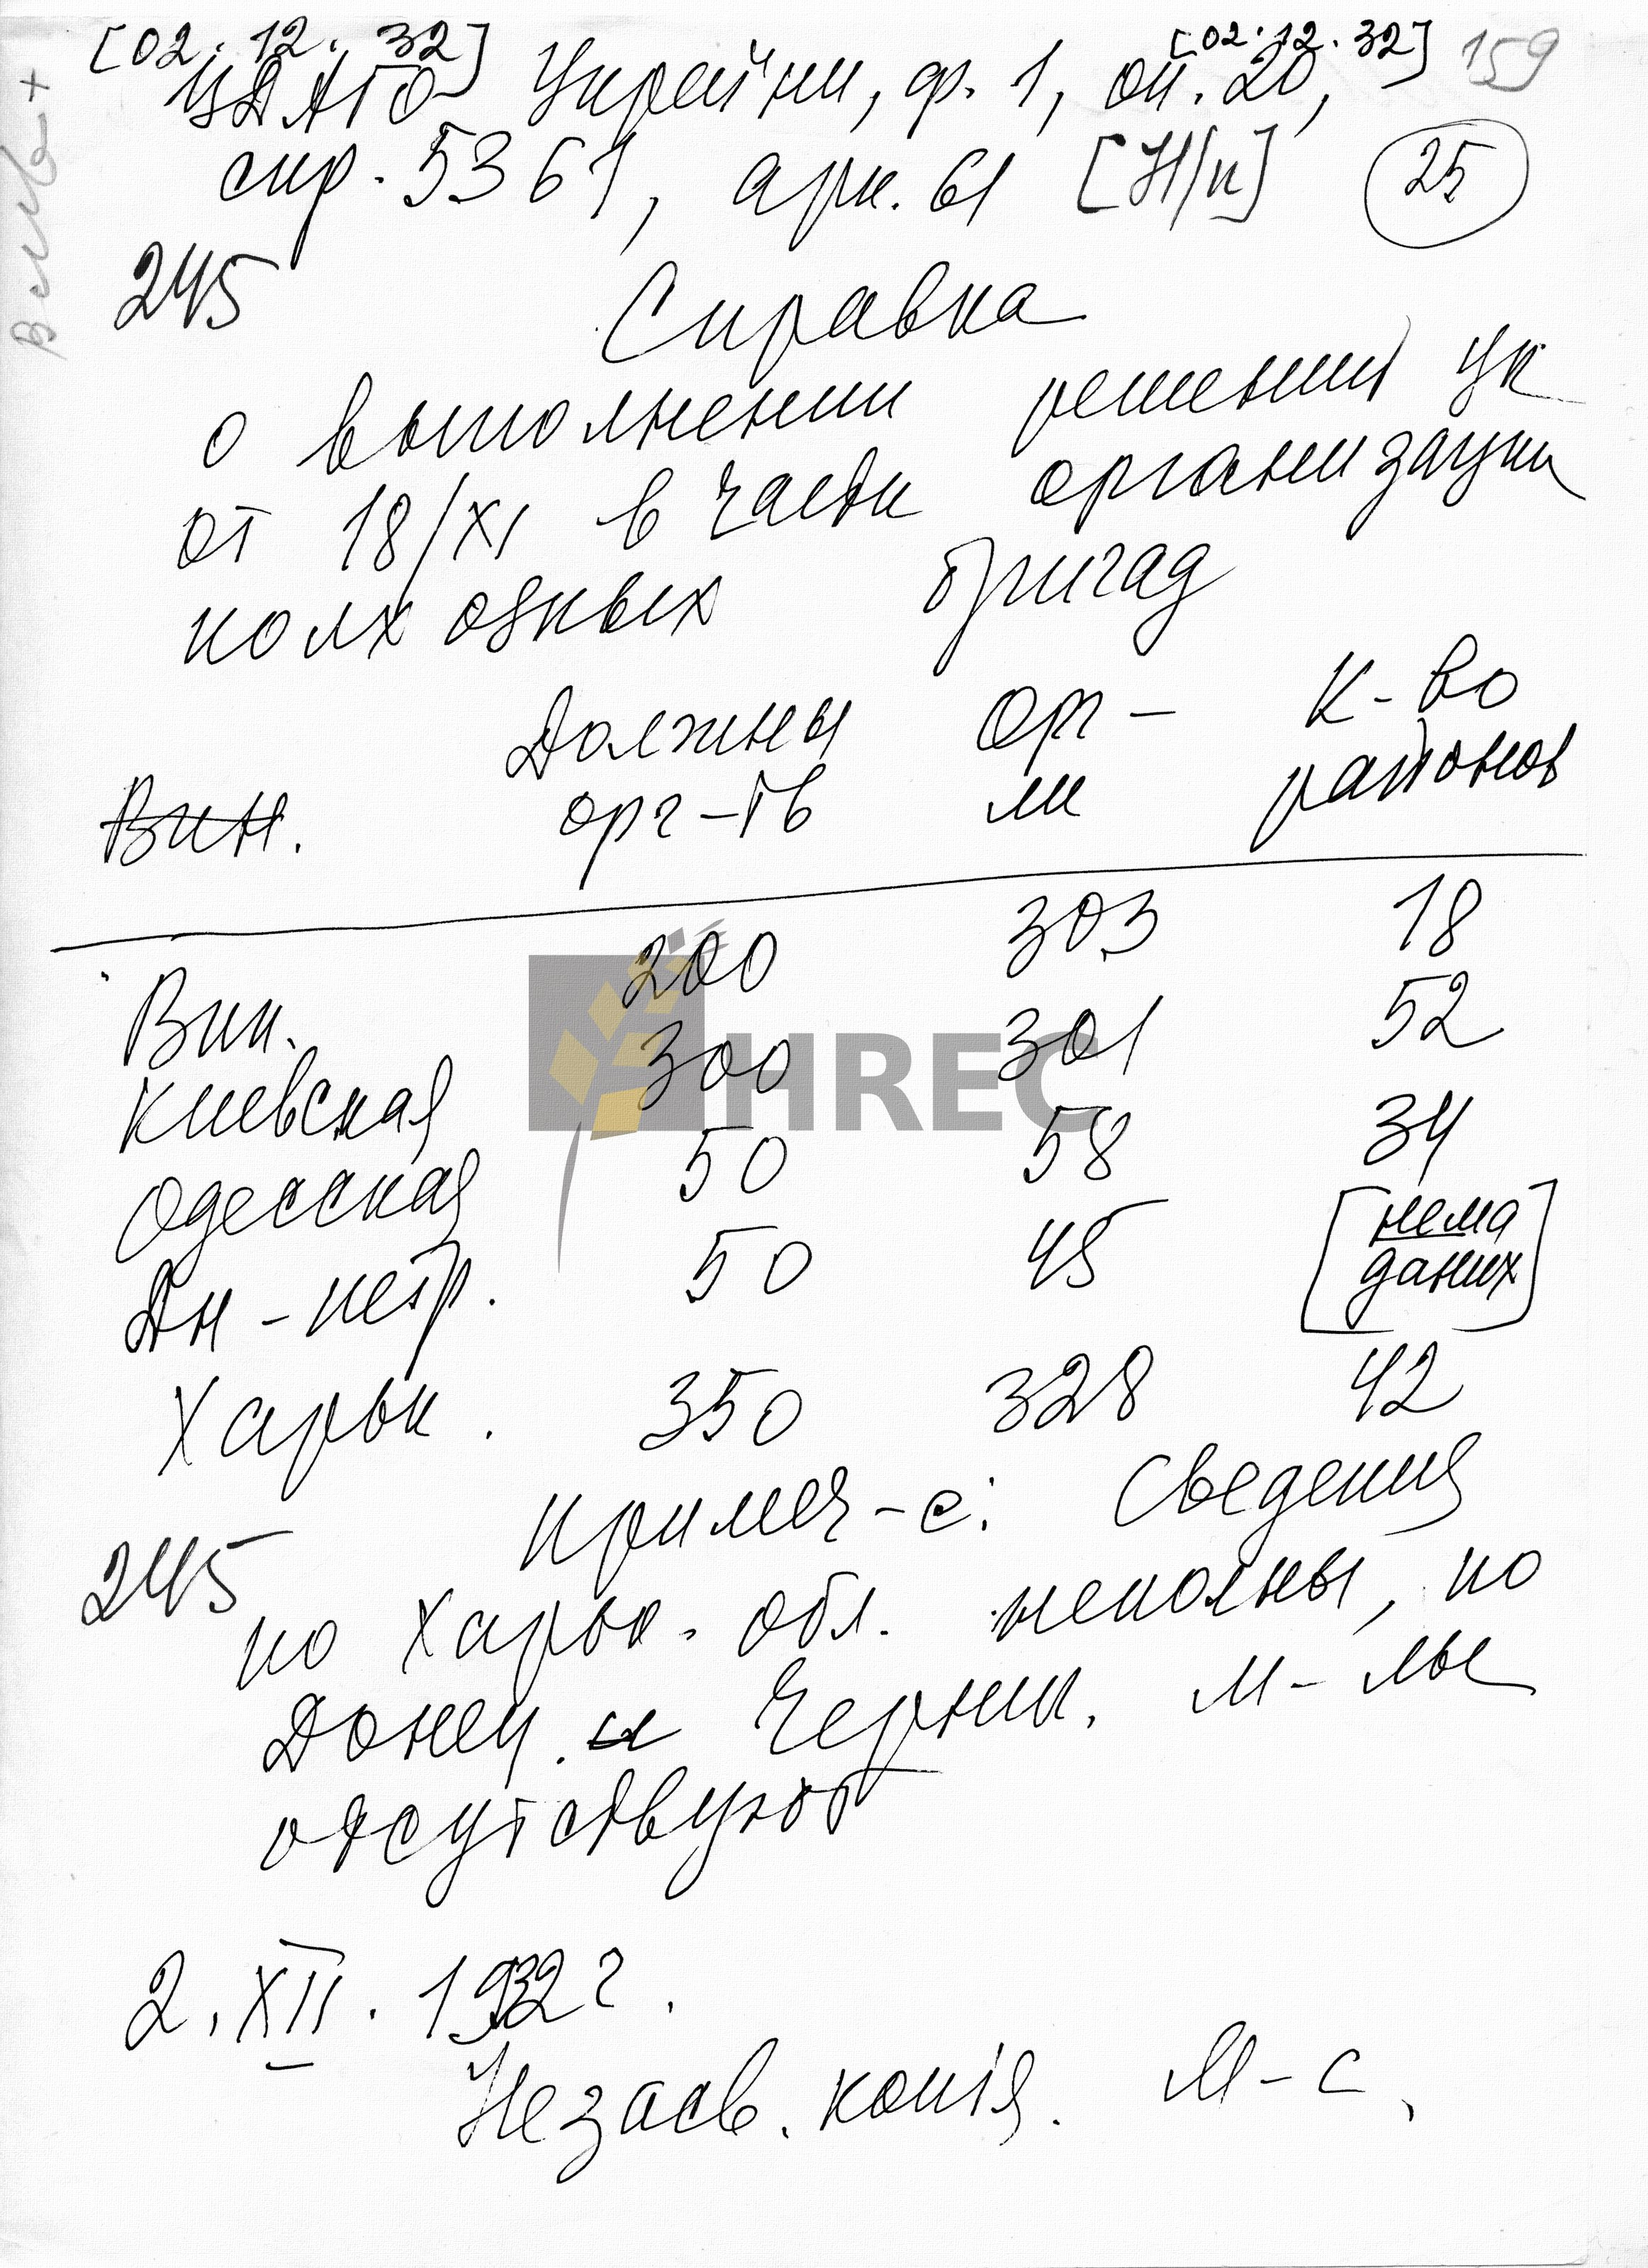 [02.12.32] [02.12.32] 159
ЦДАГО України, ф. 1, оп. 20,
спр. 5367, арк. 61 [Н/п] 25
245
Справка
о выполнении решения ЦК
от 18/XI в части организации
колхозных бригад
Должны Орг- К-во
Вин. орг-ть ли районов
200 303 18
Вин.
300 301 52
Киевская
50 58 34
Одесская
50 45 [нема
Дн-петр. даних]
Харьк. 350 328 42
Примеч-е: Сведения
245
по Харьк. обл. неполны, по
Донец. и Черниг. м-лы
отсутствуют
2.XII.1932 г.
Незасв. копія. М-с.
HREC